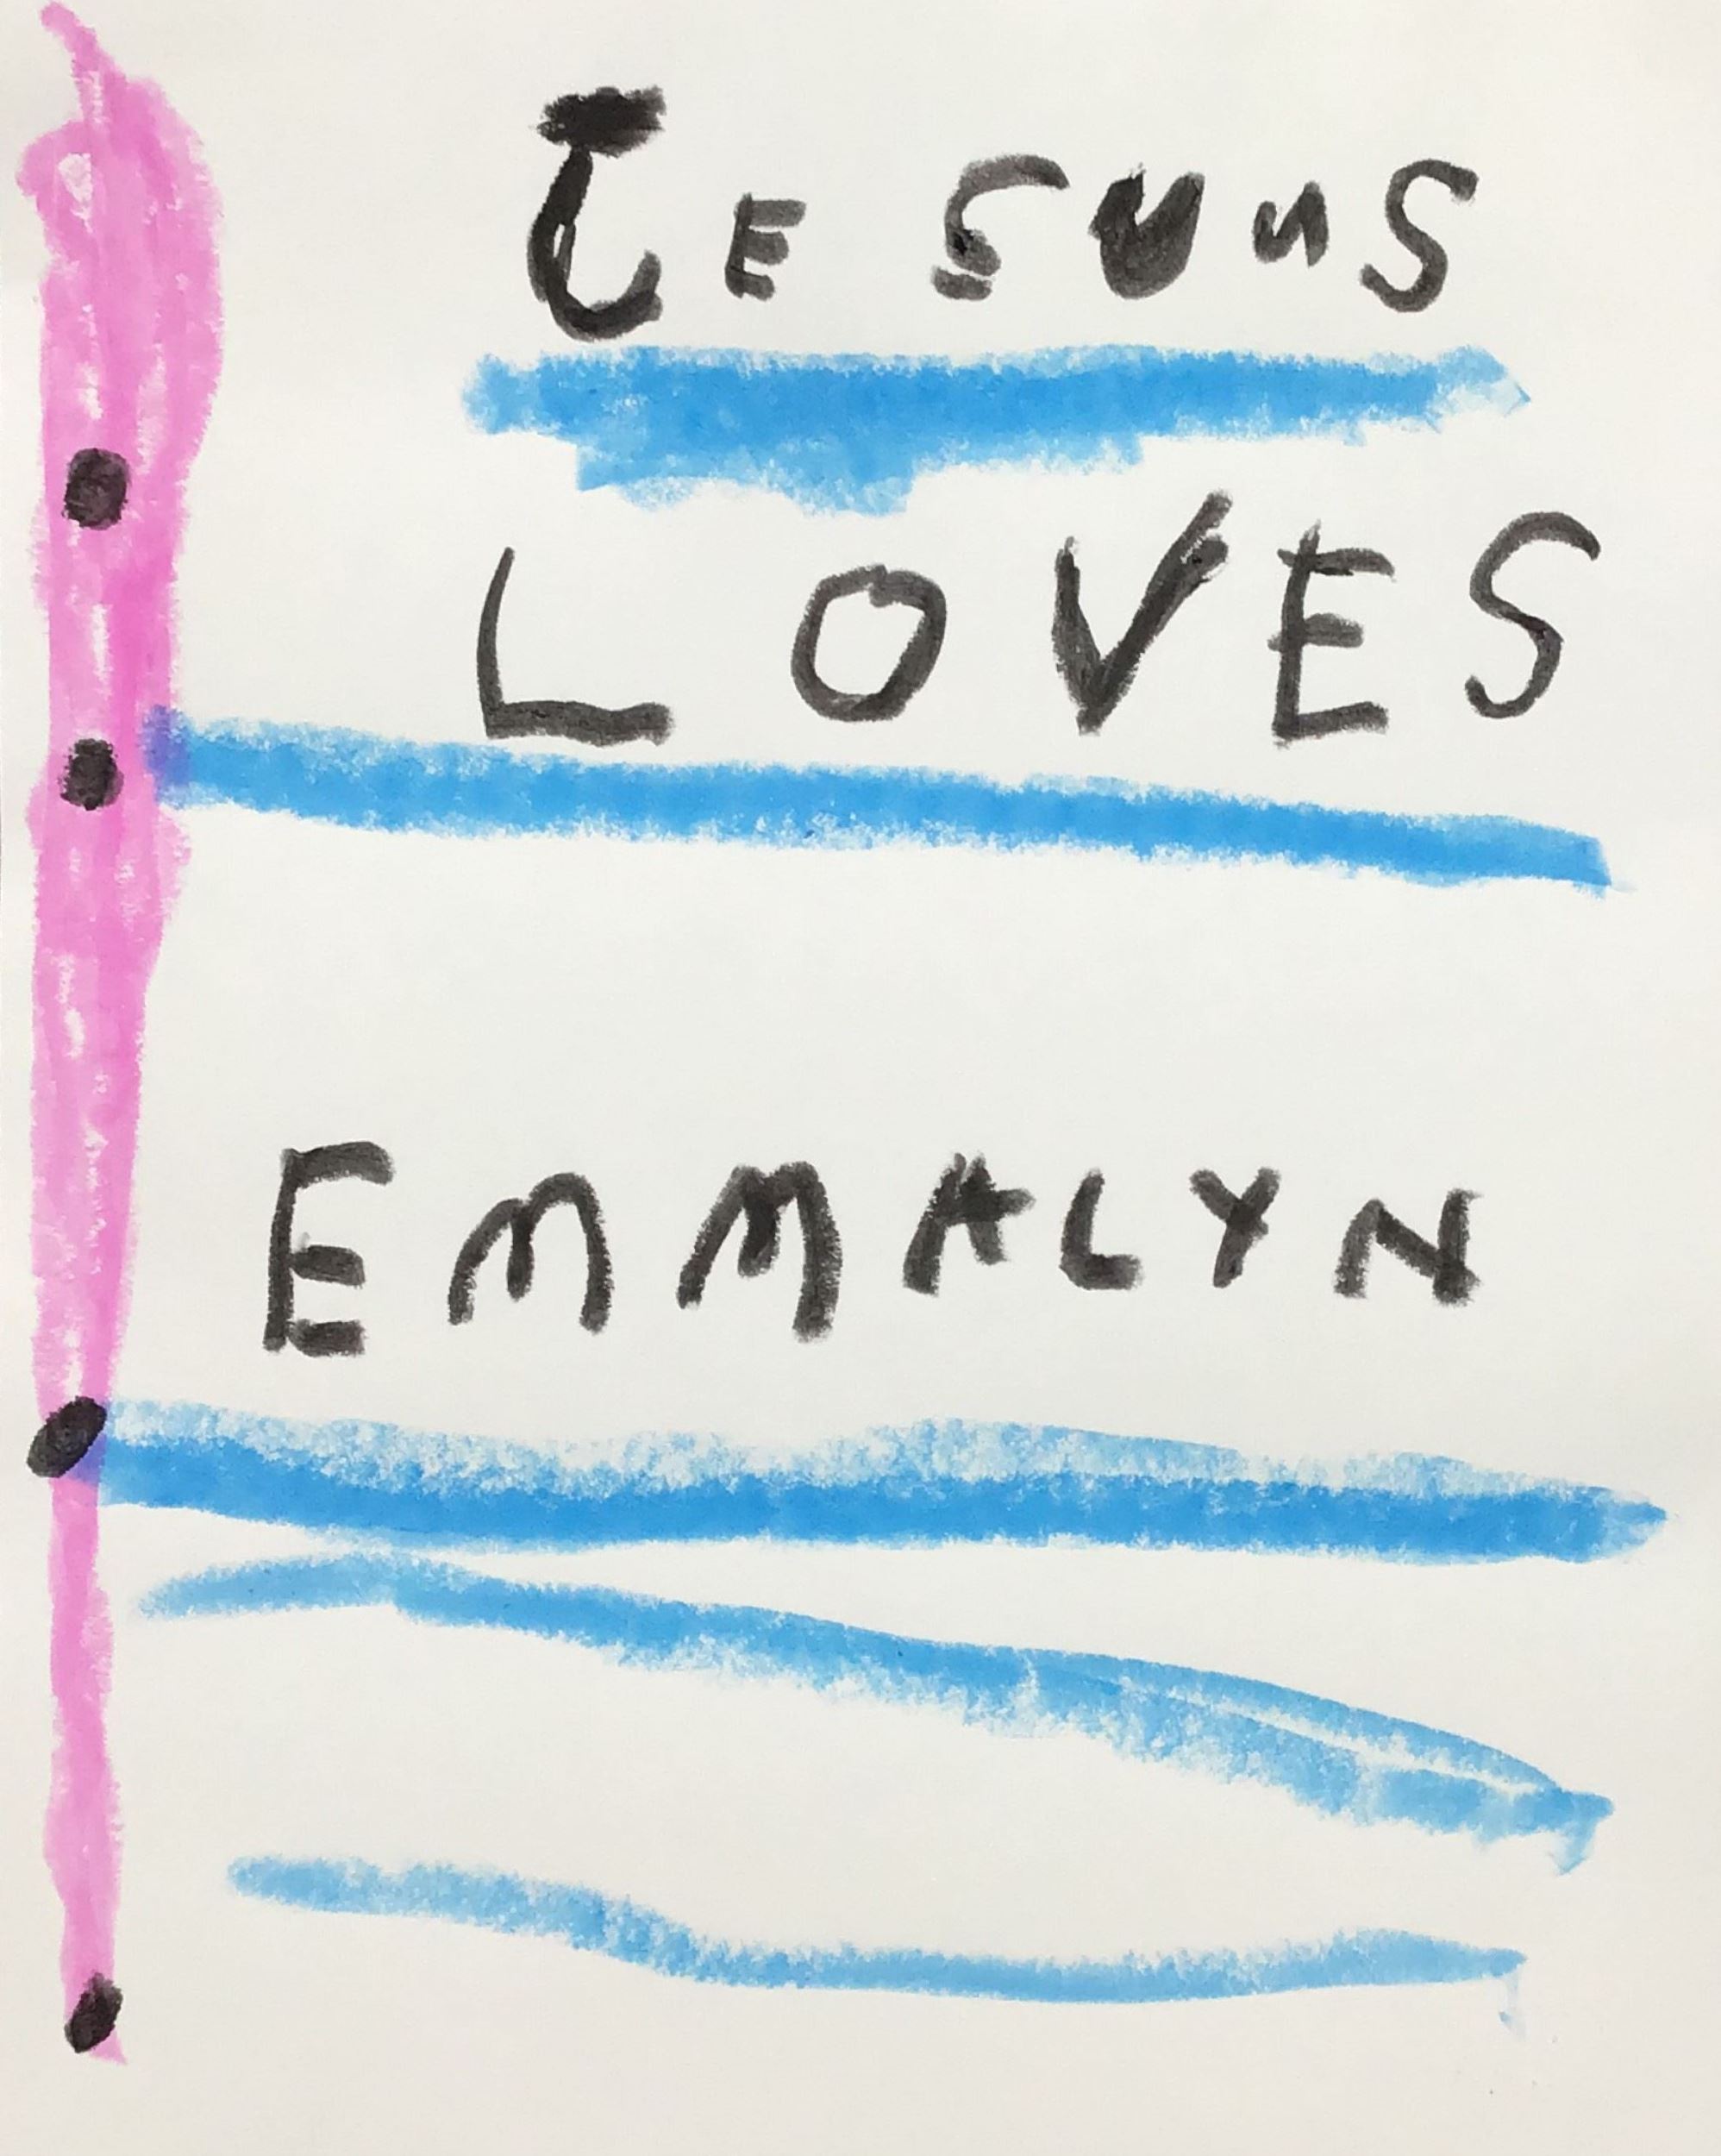 JESUS
LOVES
EMMALYN